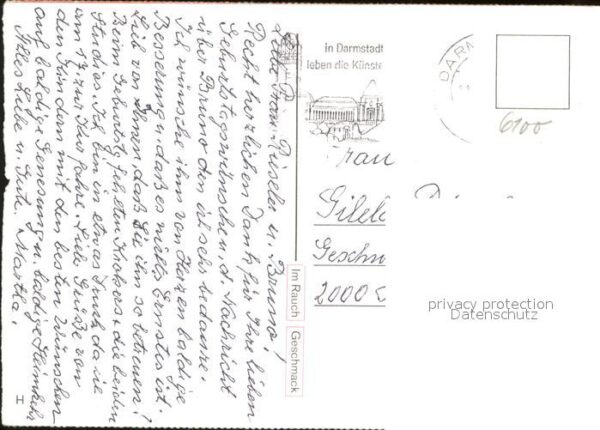 Liebe Frau Riseler u. Bruno!
Recht herzlichen Dank für Ihre lieben
Geburtstagswünsche u. d. Nachricht
über Bruno den ich sehr bedaure.
Ich wünsche ihm von Herzen baldige
Besserung u. daß es nichts Ernstes ist.
Lieb von Ihnen, daß Sie ihn so betreuen!
Beim Geburtstg fehlten Krökers + die beiden
Studios. Ich bin in etwas Druck, da ich
am 17. zur Kur fahre. Liebe Grüße von
den Kindern mit den besten Wünschen
auf baldige Genesung u. baldige Heimkehr
Alles Liebe u. Gute. Martha!
H
Im Rauch
Geschmack
in Darmstadt
leben die Künste
DARM
6100
Frau
Geschw
2000
privacy protection
Datenschutz